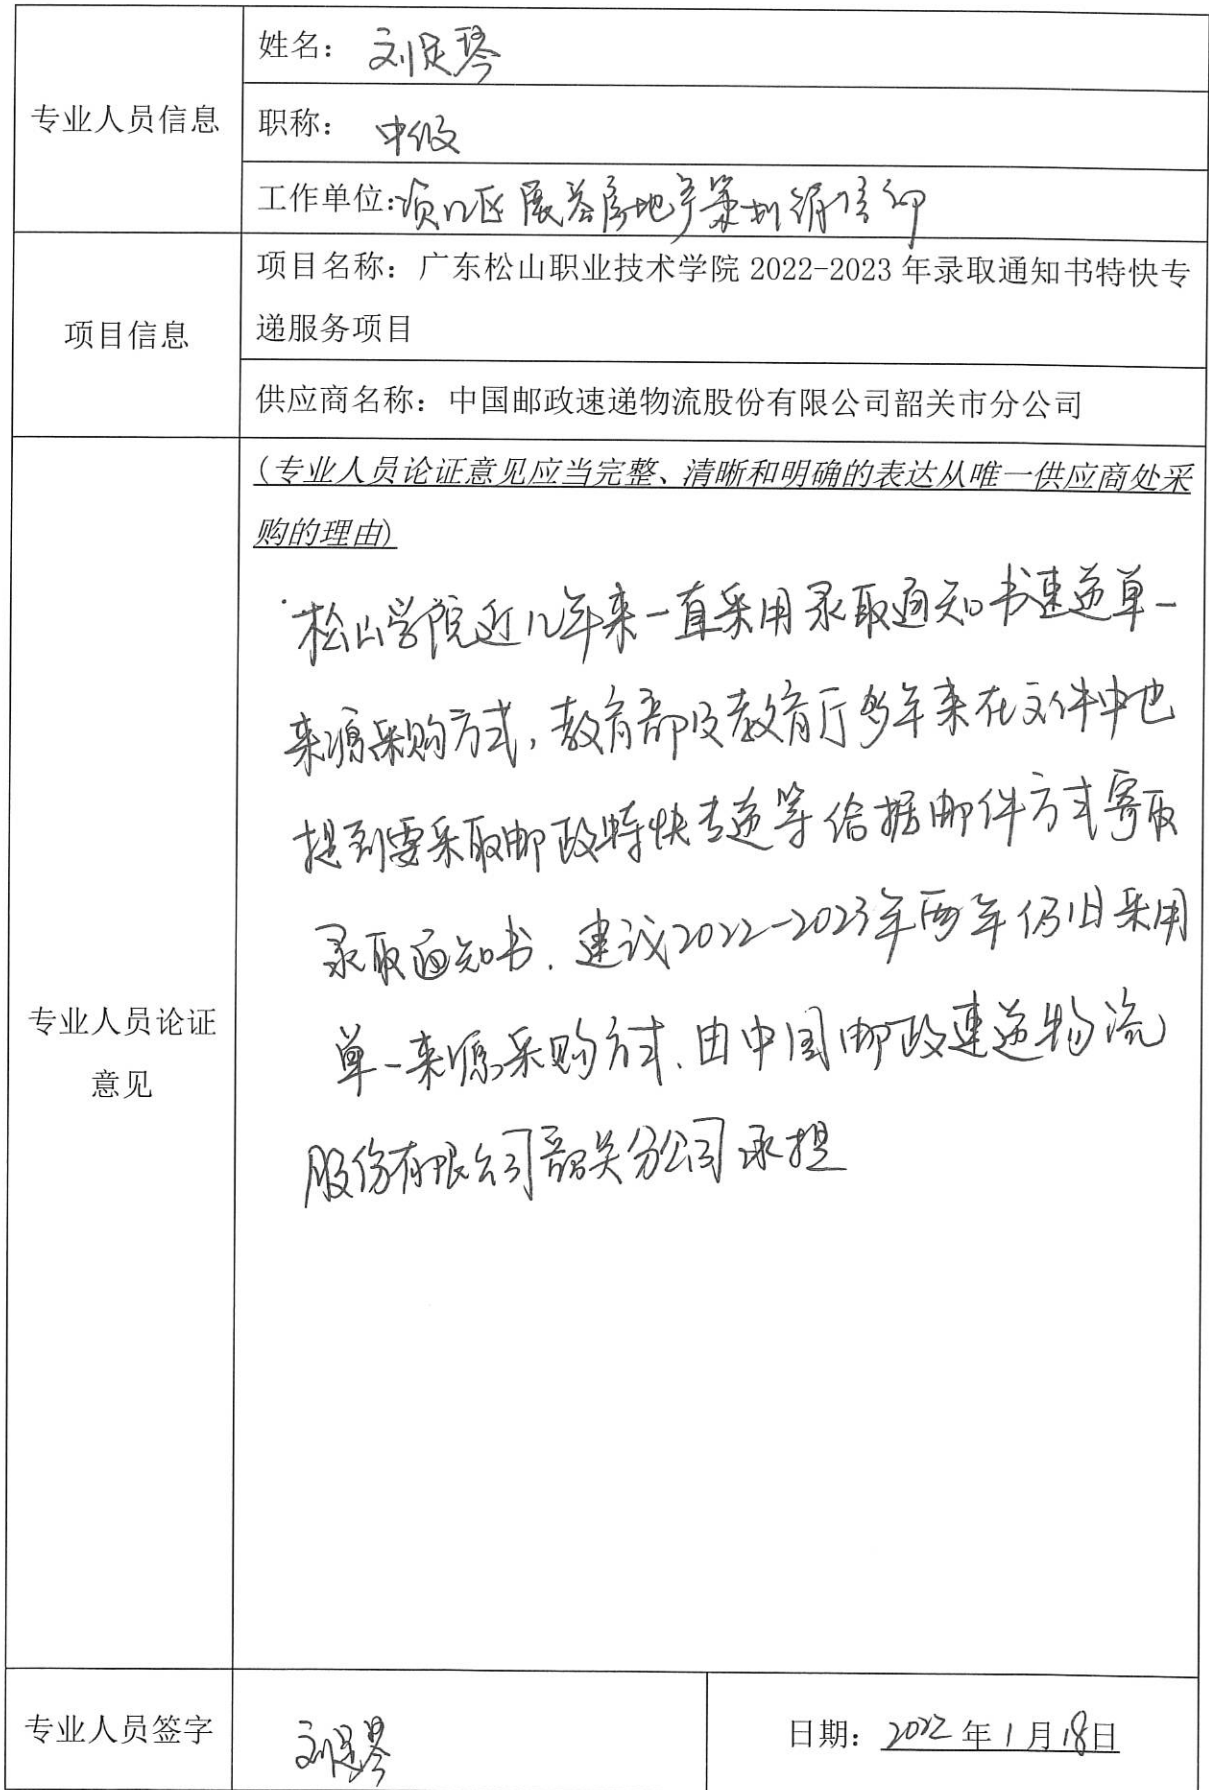 姓名：刘足琴
专业人员信息
职称：中级
工作单位：浈江区展益房地产策划
项目名称：广东松山职业技术学院 2022-2023 年录取通知书特快专
递服务项目
项目信息
供应商名称：中国邮政速递物流股份有限公司韶关市分公司
(专业人员论证意见应当完整、清晰和明确的表达从唯一供应商处采
购的理由)
松山学院近几年来一直采用录取通知书速递单一
来源采购方式，教育部及教育厅多年来在文件中也
提到要采取邮政特快专递等给据邮件方式寄取
录取通知书．建议2022-2023年两年仍旧采用
单一来源采购方式．由中国邮政速递物流
股份有限公司韶关分公司承担
专业人员论证
意见
专业人员签字
刘足琴
日期：2022 年 1 月 18 日